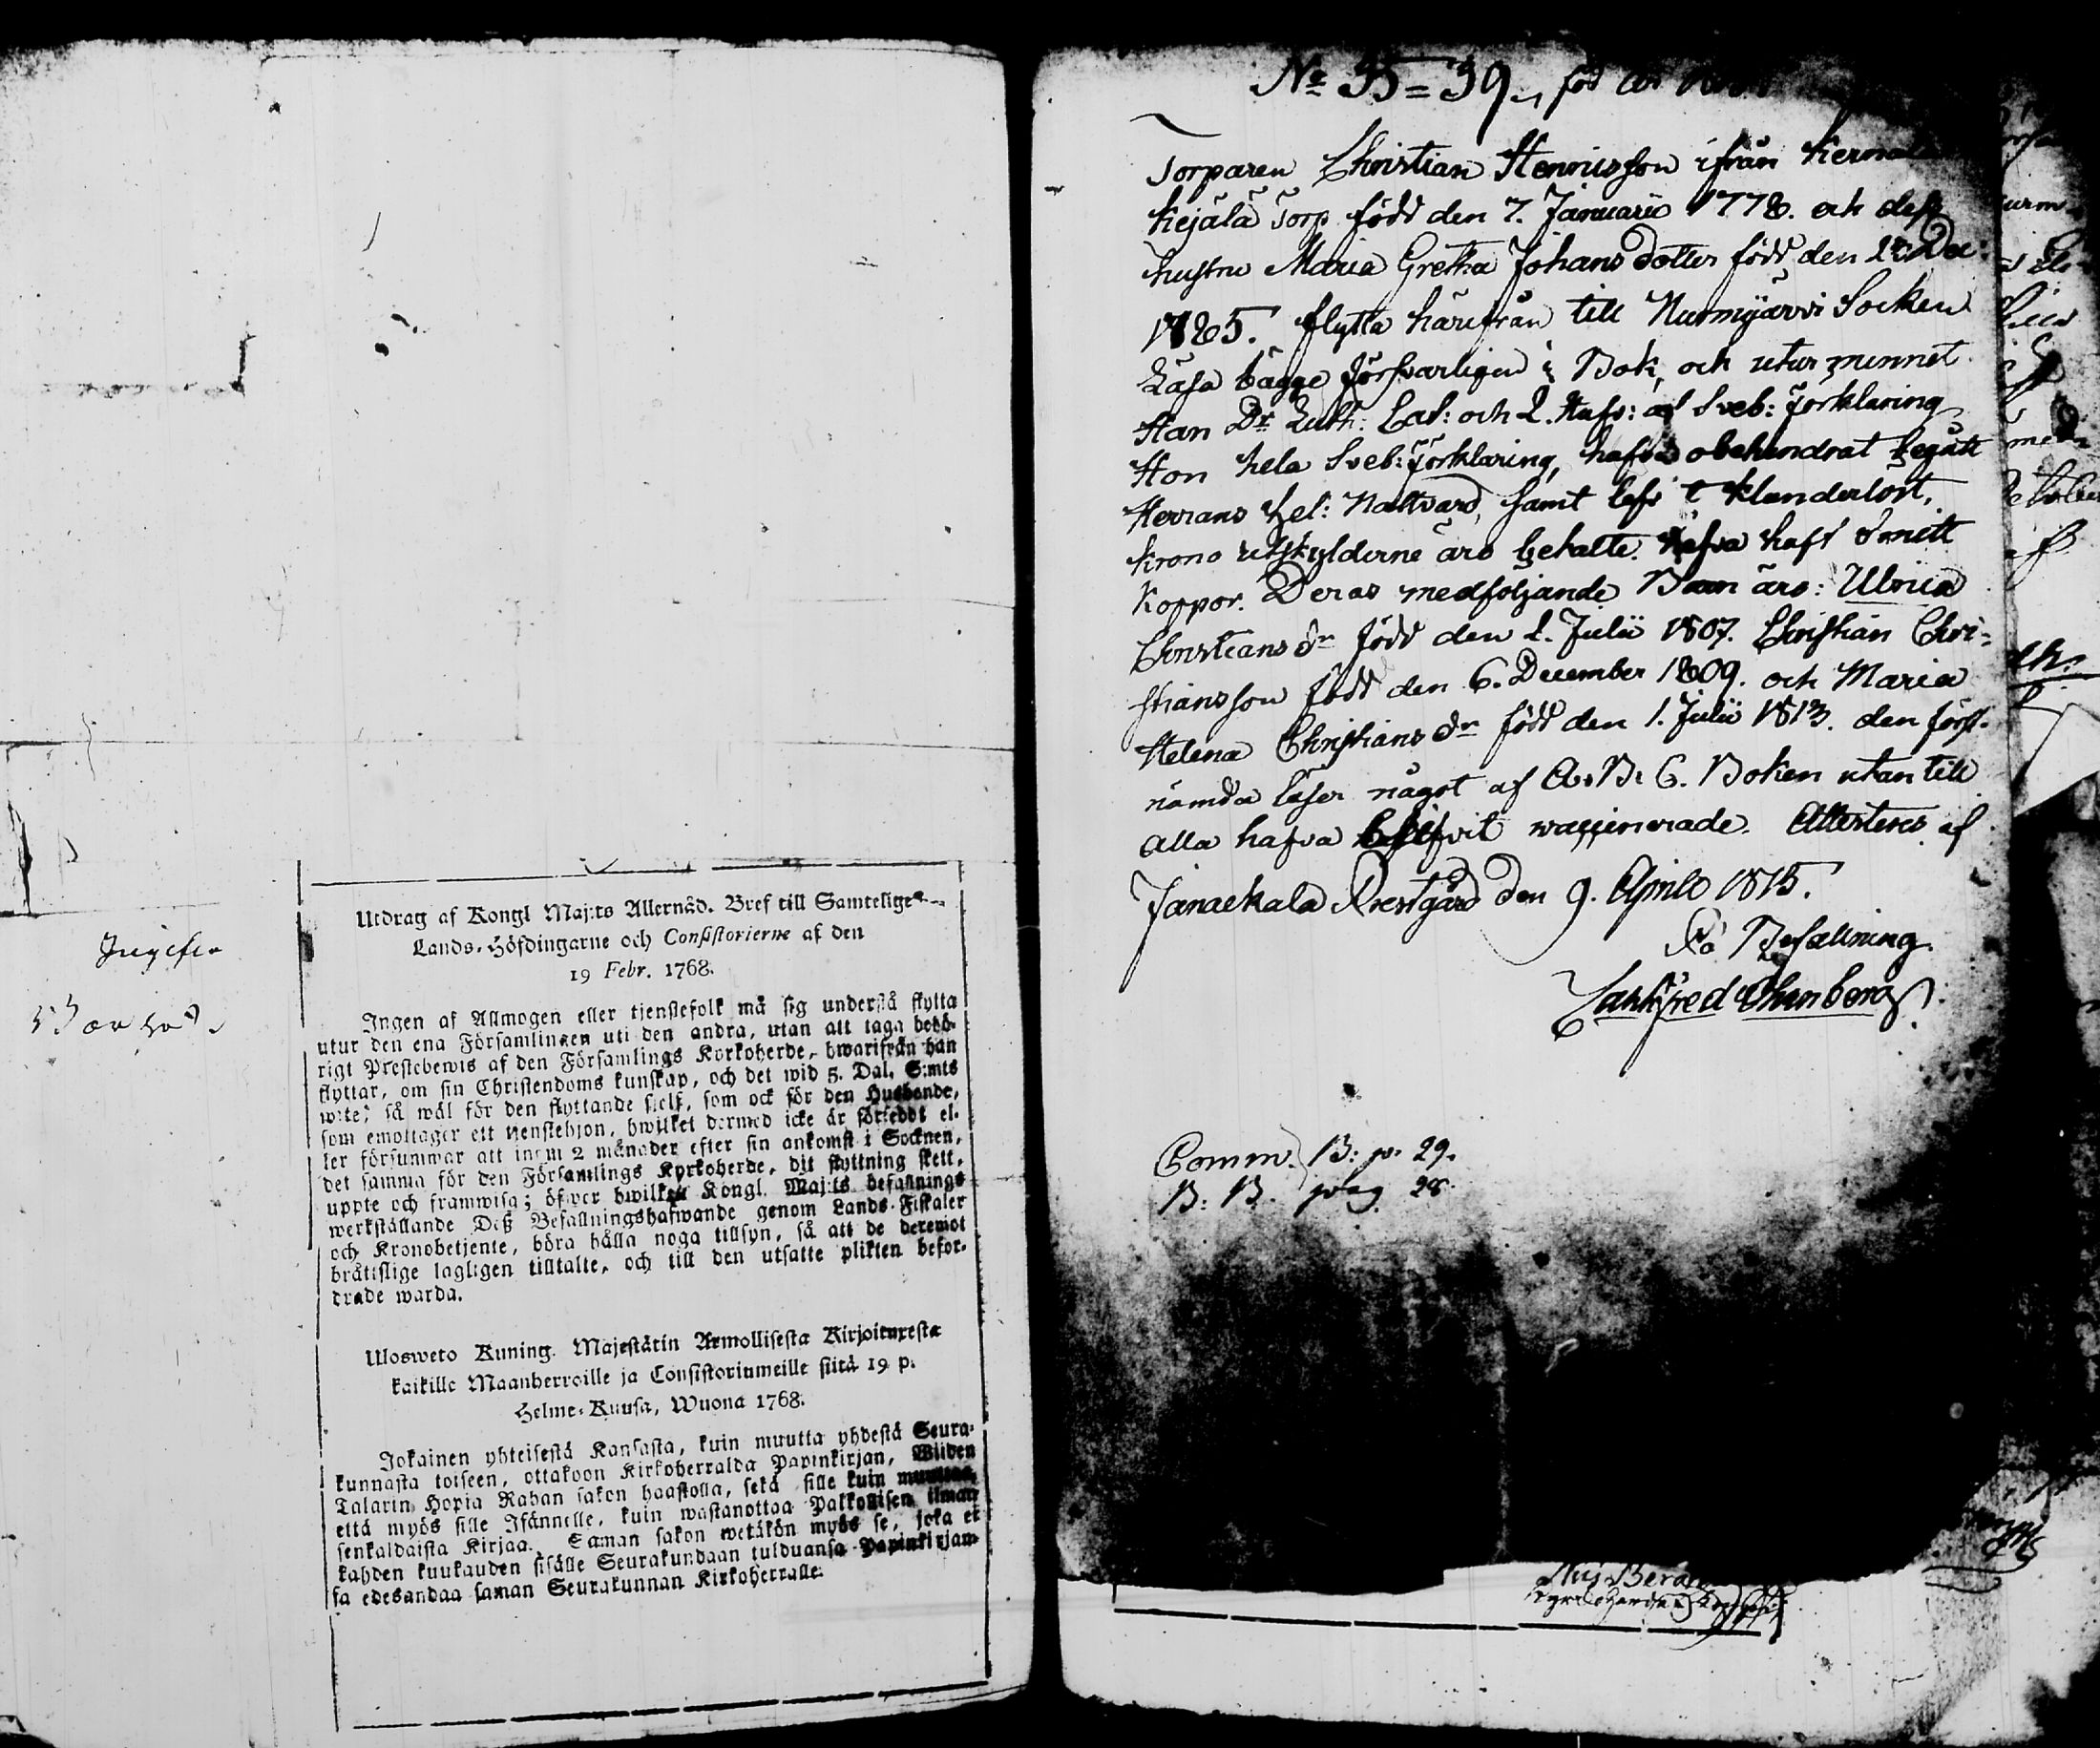 Ingifta
Utdrag af Kongl Maj:ts Allernåd. Bref till Samtelige
Lands-Höfdingarne och Consistorierne af den
19 Febr. 1768.
Ingen af Allmogen eller tjenstefolk må sig understå flytta
utur den ena Församlingen uti den andra, utan att taga behö-
rigt Prestebewis af den Församlings Kyrkoherde, hwarifrån han
flyttar, om sin Christendoms kunskap, och det wid 5. Dal. S:mts
wite; så wäl för den flyttande sielf, som ock för den Husbonde,
som emottager ett tjenstehjon, hwilket dermed icke är förseddt el-
ler försummar att inom 2 månader efter sin ankomst i Socknen,
det samma för den Församlings Kyrkoherde, dit flyttning skett,
uppte och framwisa; öfwer hwilken Kongl. Maj:ts befallnings
werkställande Deß Befallningshafwande genom Lands-Fiskaler
och Kronobetjente, böra hålla noga tillsyn, så att de deremot
bråtislige lagligen tilltalte, och till den utsatte plikten befor-
drade warda.
Ulosweto Kuning. Majestätin Armollisesta Kirjoituxesta
kaikille Maanherroille ja Consistoriumeille siitä 19 p.
Helme-Kuusa, Wuonna 1768.
Jokainen yhteisestä Kansasta, kuin muutta yhdestä Seura-
kunnasta toiseen, ottakoon Kirkoherralda Papinkirjan, Wiiden
Talarin Hopia Rahan sakon haastolla, sekä sille kuin muuttaa,
että myös sille Isännelle, kuin wastanottaa Palkollisen ilman
senkaldaista Kirjaa. Saman sakon wetäkön myös se, joka ei
kahden kuukauden sisälle Seurakundaan tulduansa Papinkirjan-
sa edesandaa saman Seurakunnan Kirkoherralle.
No 35=39.
Torparen Christian Henricsson ifrån
Kejälä Torp född den 7. Januarii 1778. och dess
hustru Maria Gretha Johansdotter född den
1785. flytta härifrån till Nurmijärvi Socken
Läsa bägge försvarligen i Bok, och utur minnet
Han Dr Luth: Cat: och 2. Kafs: af Sveb: förklaring
Hon hela Sveb: förklaring, hafva obehindrat begått
Herrans hel: Nattvard, samt lefvt klanderlöst,
krono utskylderne äro betalte. hafva haft Smitt
koppor. Deras medföljande Barn äro: Ulrica
Christians dr född den 2. Julii 1807. Christian Chri-
stiansson född den 6. December 1809. och Maria
Helena Christians dr född den 1. Julii 1813. den först-
nämda läser något af A. B. C. Boken utan till
Alla hafva blifvit waccinerade. Attesteras af
Janackala Prestgård den 9. Aprill 1815.
På Befallning.
Comm. B: p. 29.
B: B. pag. 28.